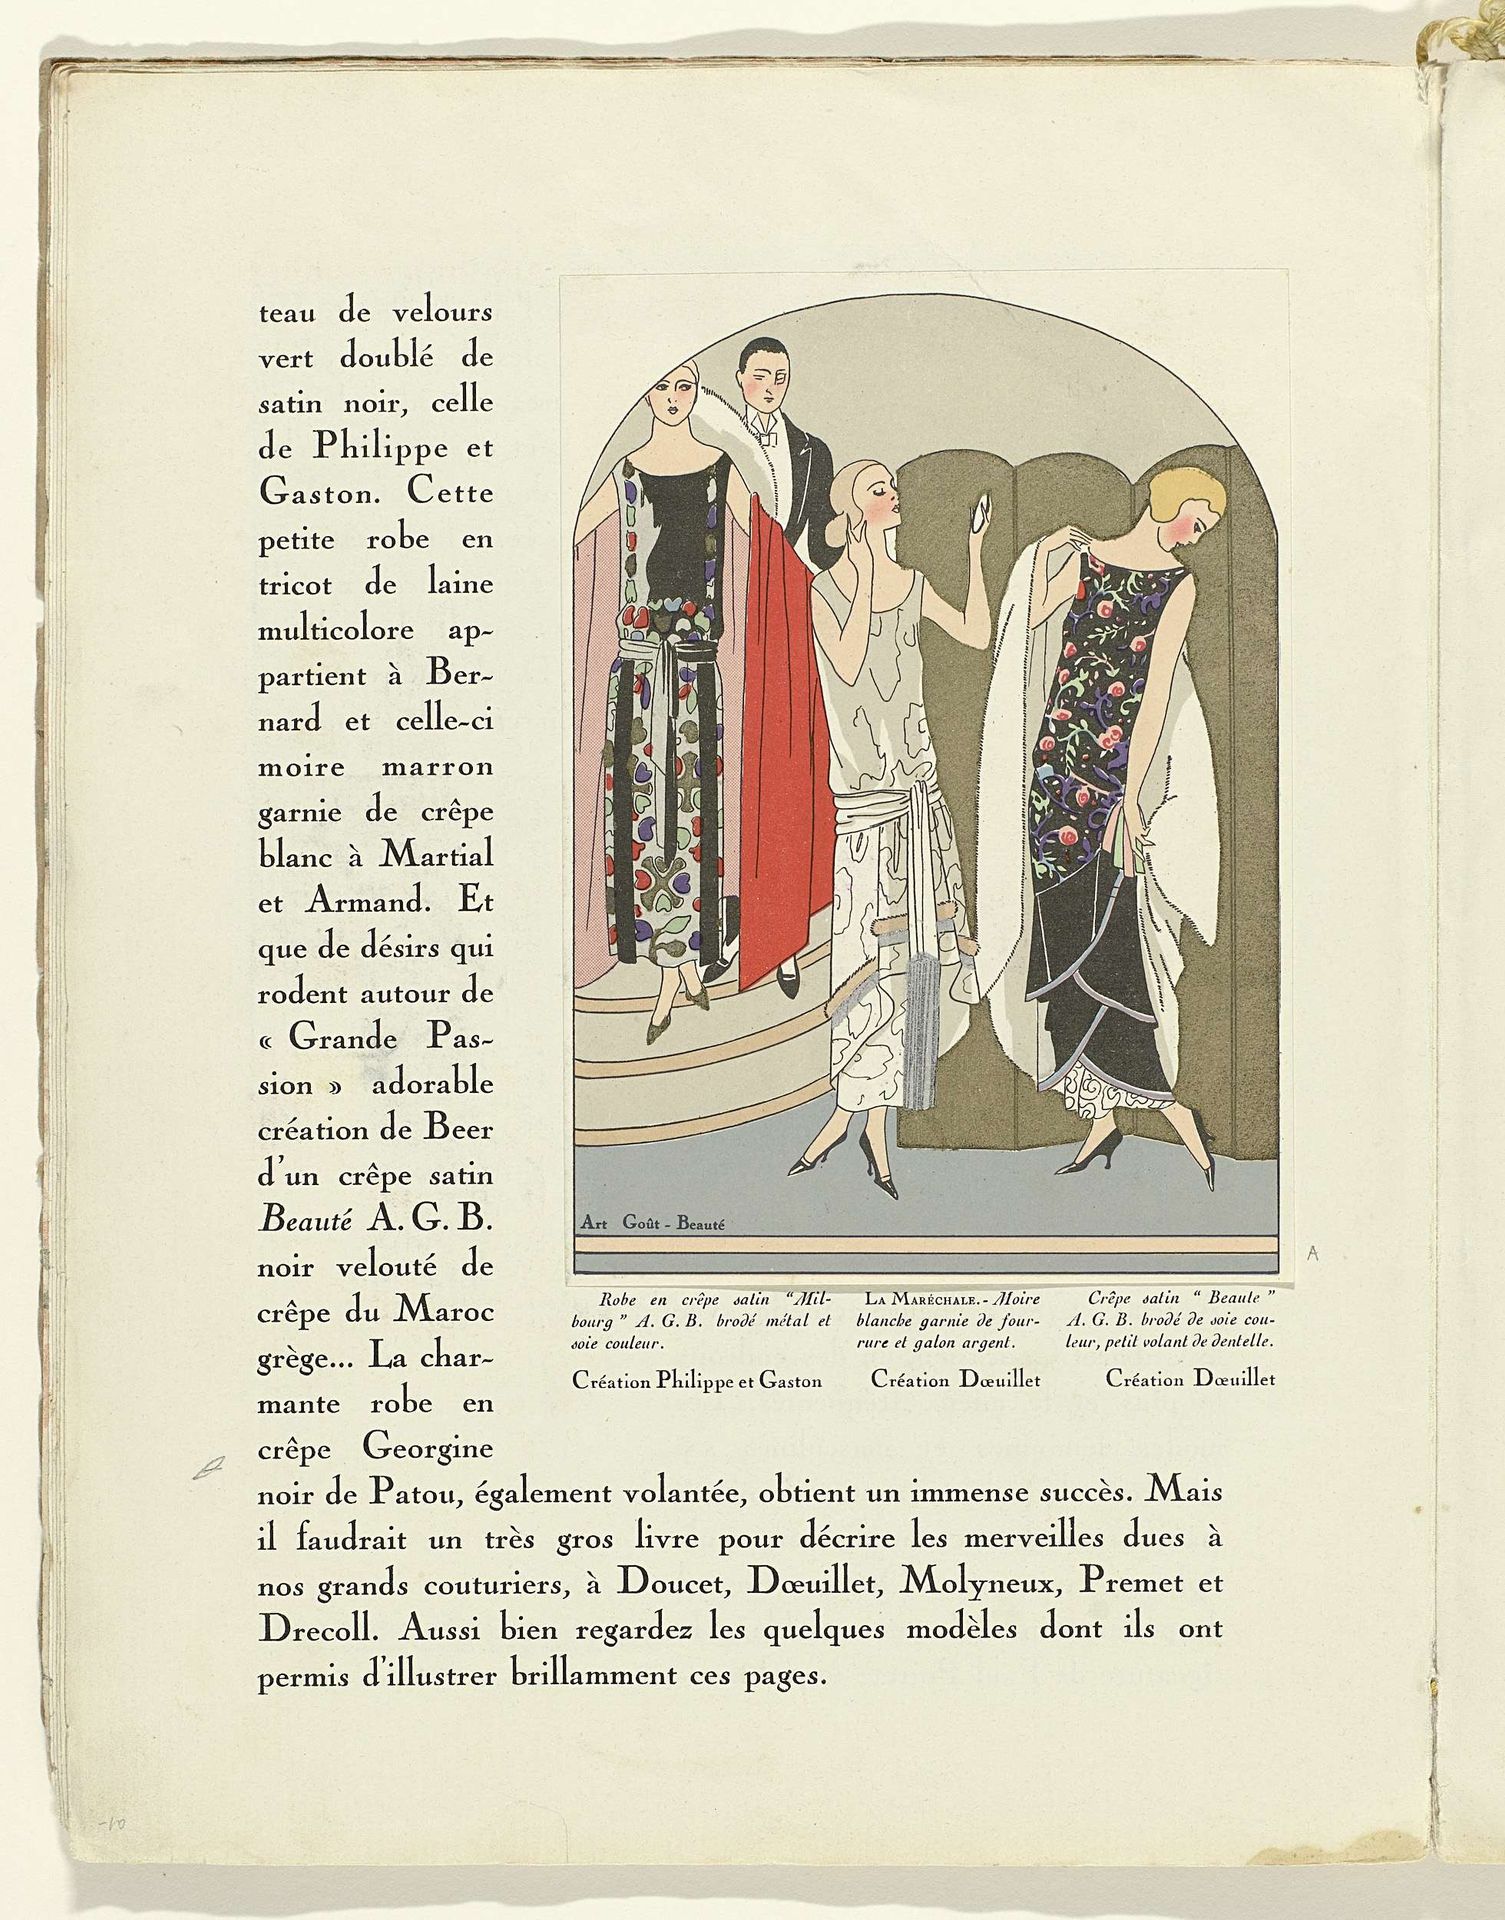 teau de velours
vert doublé de
satin noir, celle
de Philippe et
Gaston. Cette
petite robe en
tricot de laine
multicolore ap-
partient à Ber-
nard et celle-ci
moire marron
garnie de crêpe
blanc à Martial
et Armand. Et
que de désirs qui
rodent autour de
« Grande Pas-
sion » adorable
création de Beer
d'un crêpe satin
Beauté A. G. B.
noir velouté de
crêpe du Maroc
grège... La char-
mante robe en
crêpe Georgine
noir de Patou, également volantée, obtient un immense succès. Mais
il faudrait un très gros livre pour décrire les merveilles dues à
nos grands couturiers, à Doucet, Dœuillet, Molyneux, Premet et
Drecoll. Aussi bien regardez les quelques modèles dont ils ont
permis d'illustrer brillamment ces pages.
Art Goût - Beauté
A
Robe en crêpe satin "Mil-
bourg" A. G. B. brodé métal et
soie couleur.
Création Philippe et Gaston
LA MARÉCHALE. - Moire
blanche garnie de four-
rure et galon argent.
Création Dœuillet
Crêpe satin " Beaute "
A. G. B. brodé de soie cou-
leur, petit volant de dentelle.
Création Dœuillet
-10